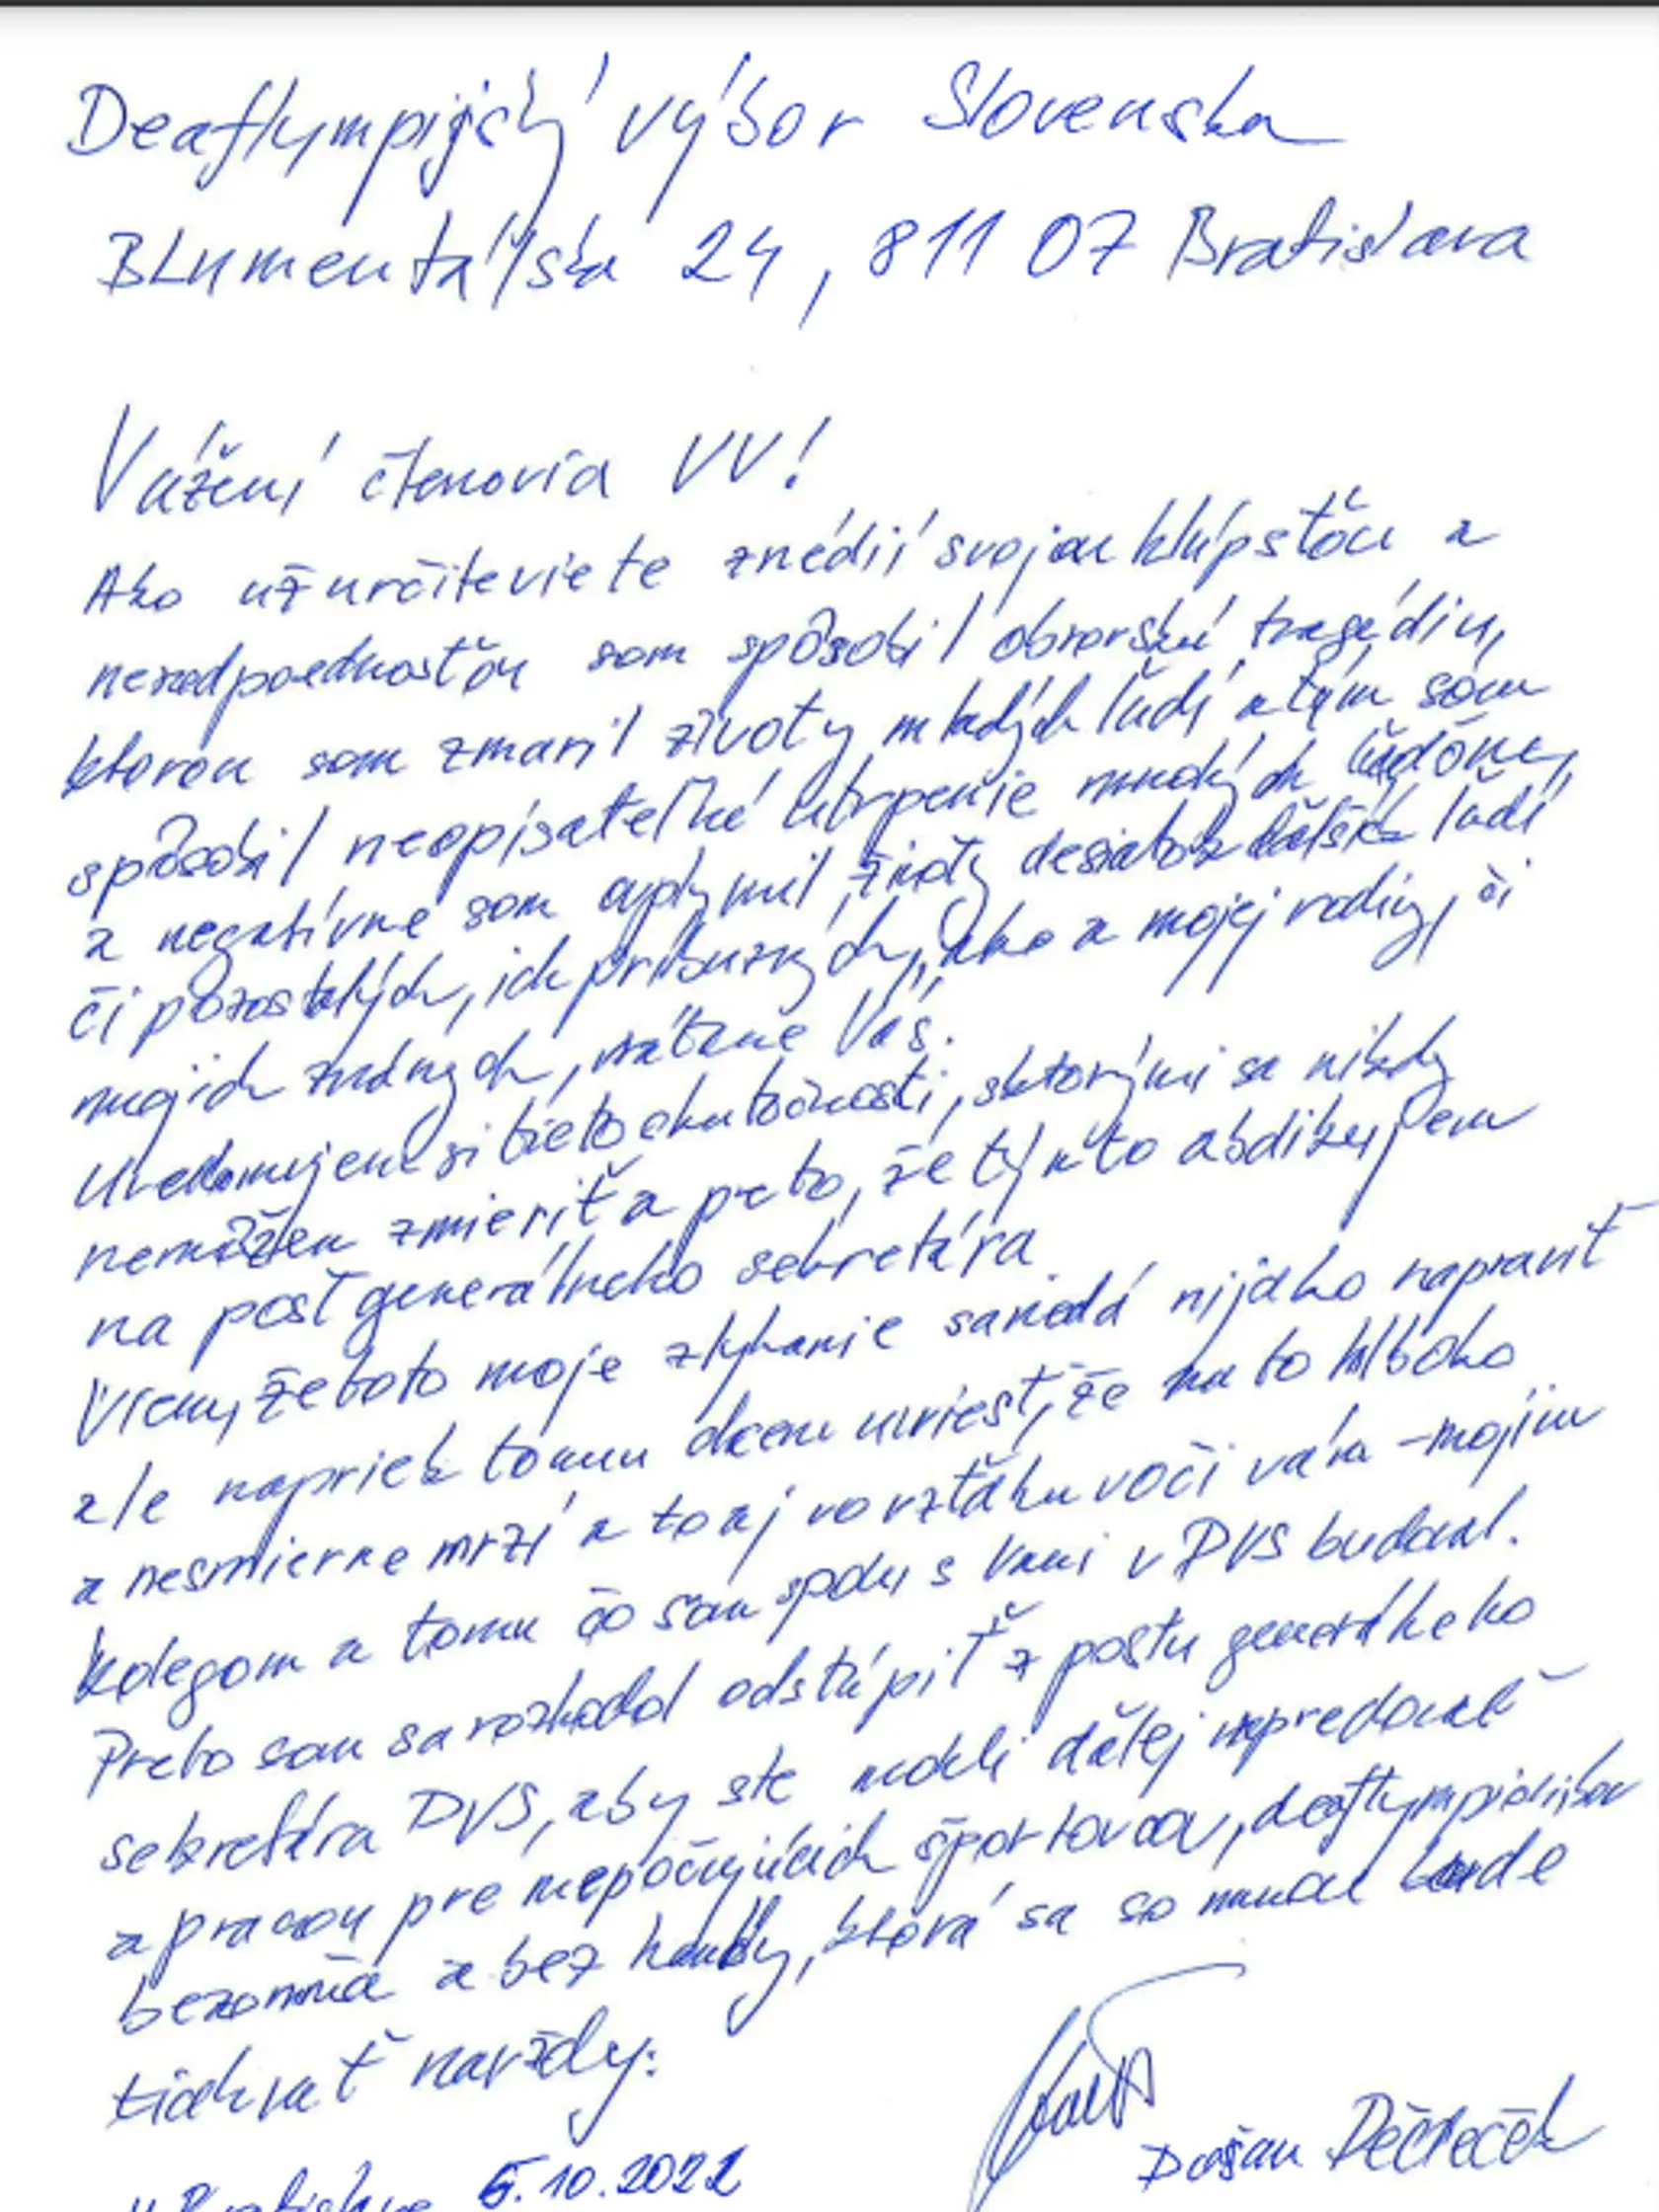 Deaflympijský výbor Slovenska
Blumentálska 24, 811 07 Bratislava
Vážení členovia VV!
Ako už určite viete z médií svojou hlúpsťou a
nezodpovednosťou som spôsobil obrovskú tragédiu,
ktorou som zmaril životy mladých ľudí a tým som
spôsobil neopísateľné utrpenie mnohých
a negatívne som životy desiatok ďalších ľudí
či pozostalých, ich príbuzných, ako a mojej rodiny, či
mojich známych, vrátane Vás.
Uvedomujem si tieto skutočnosti, s ktorými sa nikdy
nemôžem zmieriť a preto, že týmto abdikujem
na post generálneho sekretára
Viem, že toto moje zlyhanie sa nedá nijako napraviť
ale napriek tomu chcem uviesť, že ma to hlboko
a nesmierne mrzí a to aj vo vzťahu voči vám - mojim
kolegom a tomu čo som spolu s Vami v DVS budoval.
Preto som sa rozhodol odstúpiť z postu generálneho
sekretára DVS, aby ste mohli ďalej napredovať
a pracou pre nepočujúcich športovcov, deaflympionikov
bezomňa a bez hanby, ktorá sa so mnou bude
tiahnuť navždy.
V Bratislave 5.10.2022
Dušan Dědeček